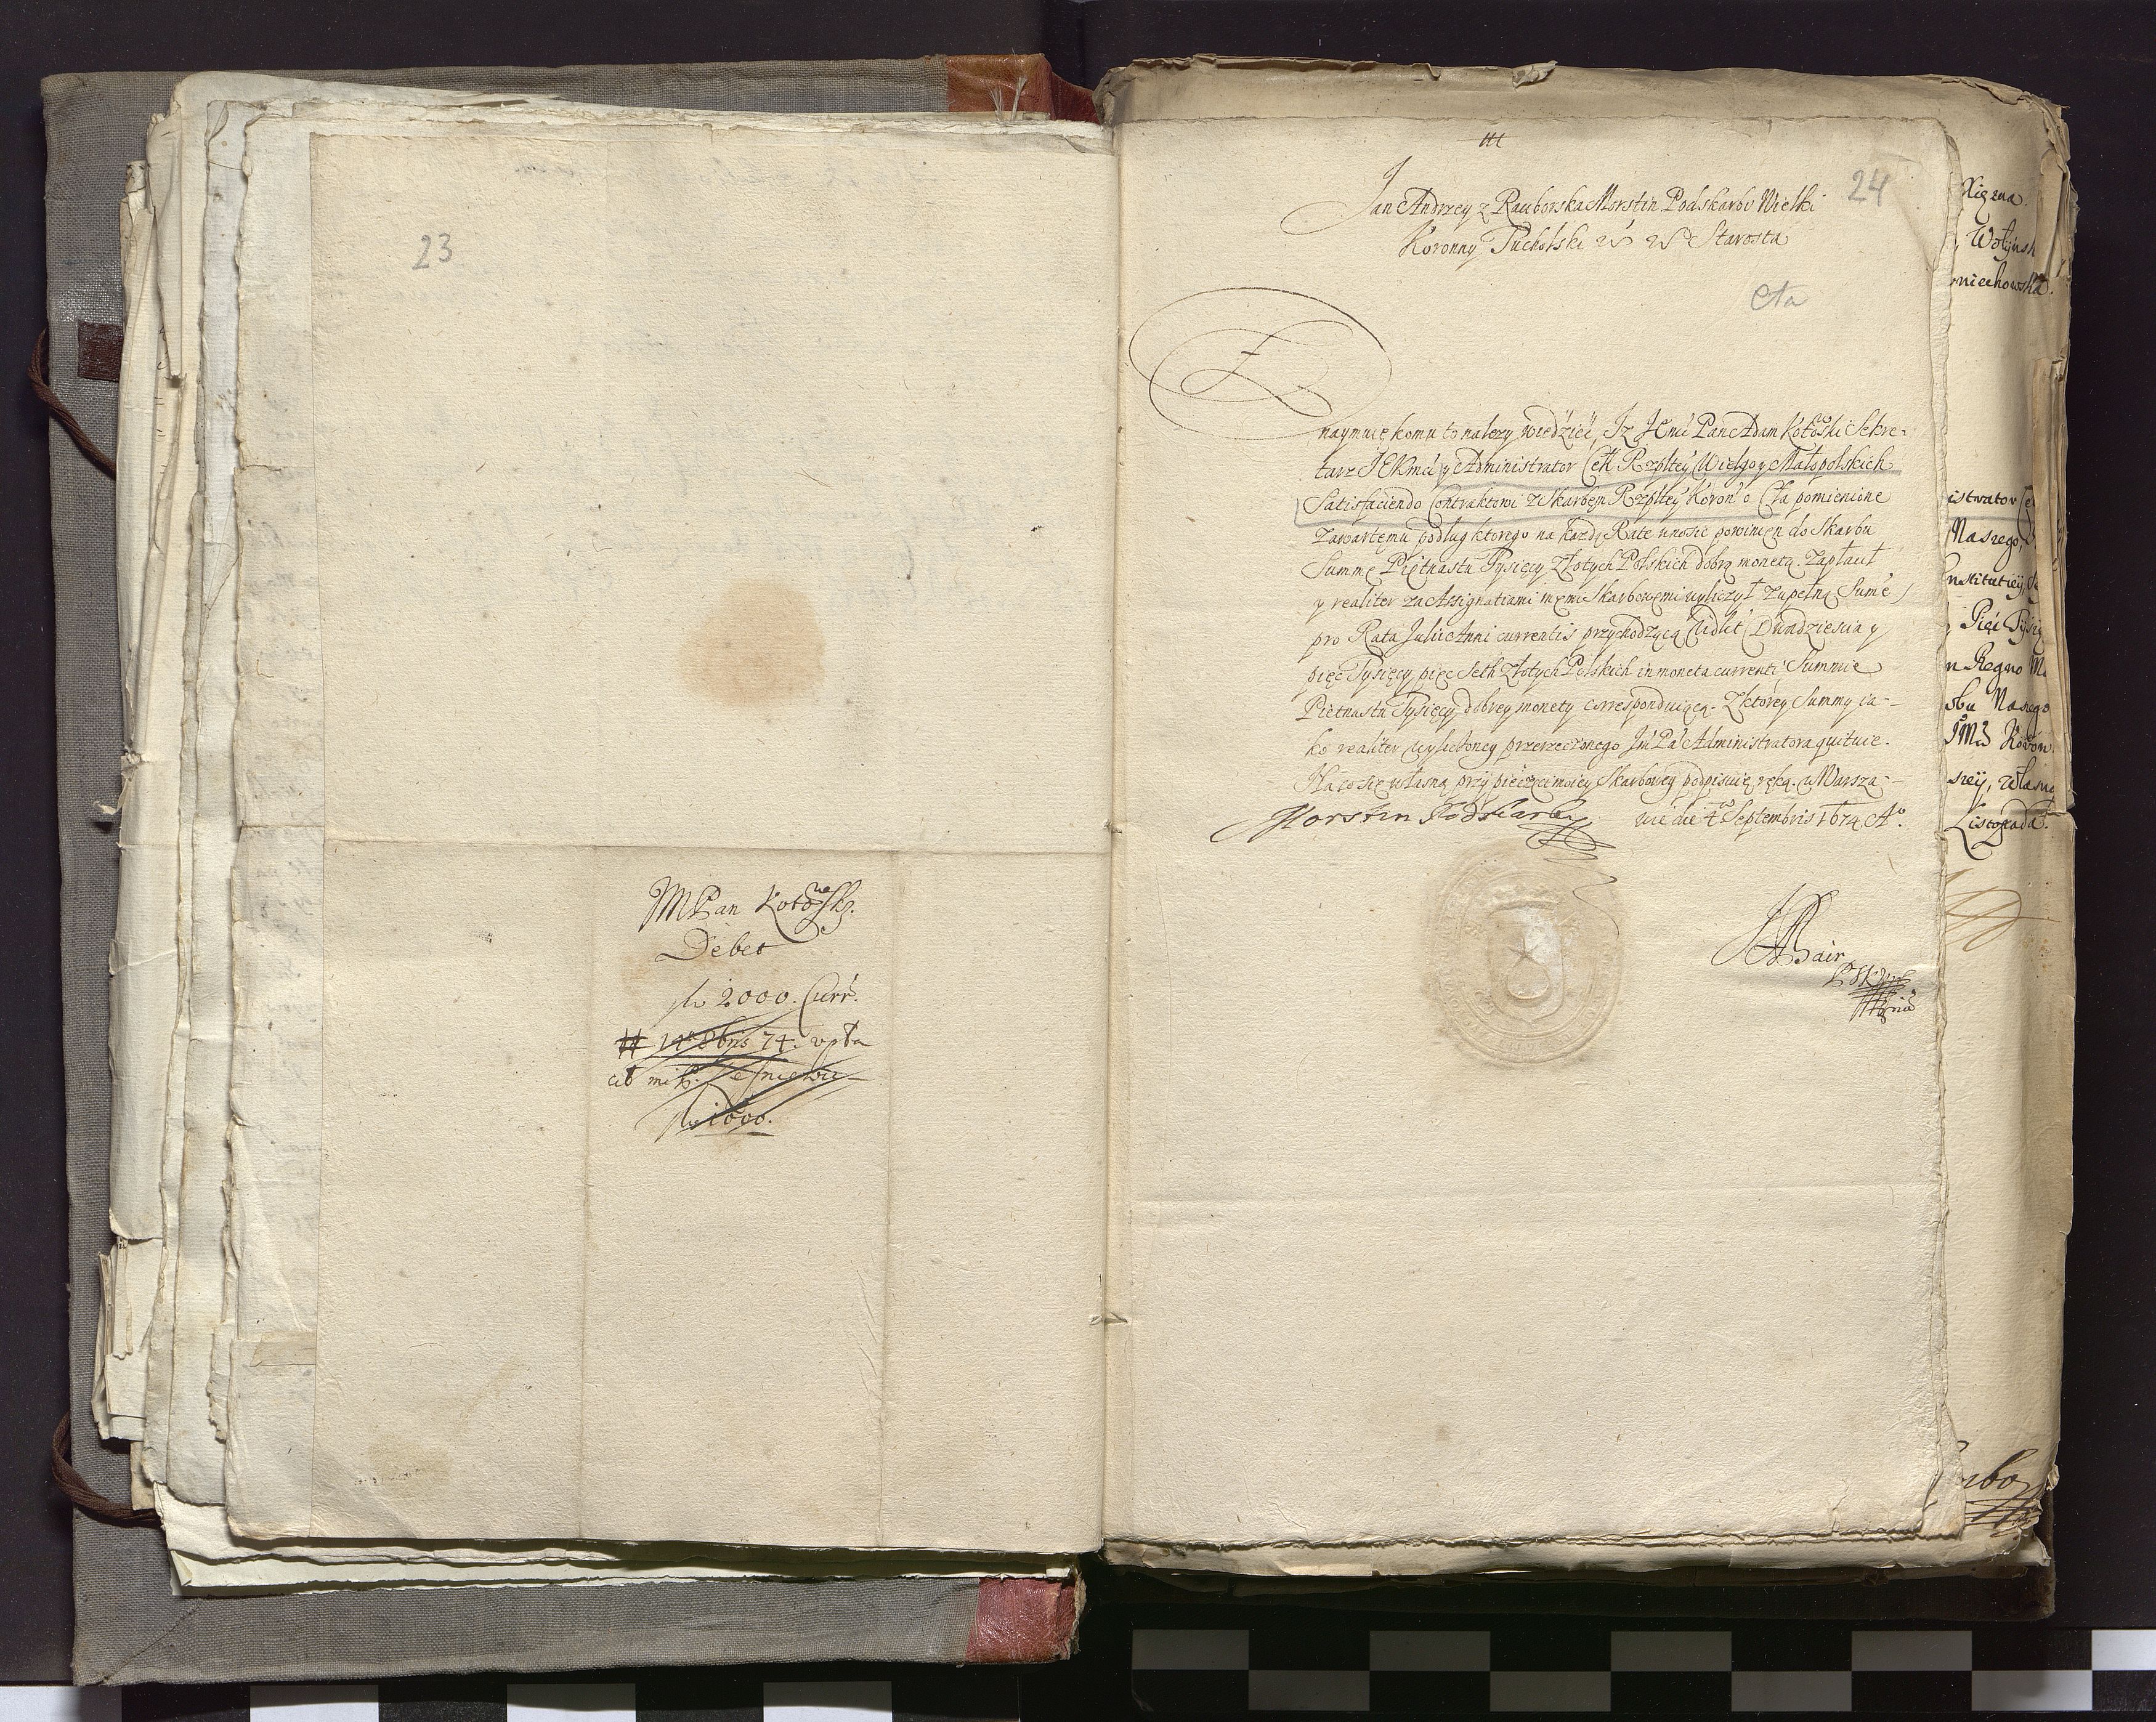 23
JMPan Kotowsky
Debet
fl 2000. Curr.
14 8bris 74. vpła
cił mi P.
fl 1600.
24
Jan Andrzey z Raciborska Morstin Podskarbi Wielki
Koronny Tucholski & & Starosta
Cła
Znaymuię komu to nalezy wiedzieć, Iz JEmć Pan Adam Kotowski Sekre-
tarz JEKmći y Administrator Ceł Rzpltey Wielgo y Małopolskich
Satisfaciendo Contraktowi z Skarbem Rzpltey Koron o Cła pomienione
zawartemu podług ktorego na kazdą Ratę wnosic powinien do Skarbu
Summę Piętnastu Tysięcy Złotych Polskich dobrą monetą. Zapłacił
y realiter za Assignatiami memi Skarbowemi wyliczył zupełną Sumę
pro Rata Julii Anni currentis przychodzącą Videlt Dwudziestu y
pięc Tysięcy pięc Seth Złotych Polskich in moneta currenti Summie
Piętnastu Tysięcy dobrey monety correspónduiącą. Z ktorey Summy ia-
ko realiter wyliczoney przerzeczonego Jm Pa Administratora quituię.
Na co się własną przy pieczęci moiey Skarbowey podpisuię ręką. w Warsza-
wie die 4 Septembris 1674 Ao.
Morstin Podskarby
Xięzna
Wołyńsk
niechowska.
istrator Ce
Naszego,
nstitutiey,
Pięć Tysię
n Regno
obu Naszego
JMć Koron
szey, własną
Listopada.